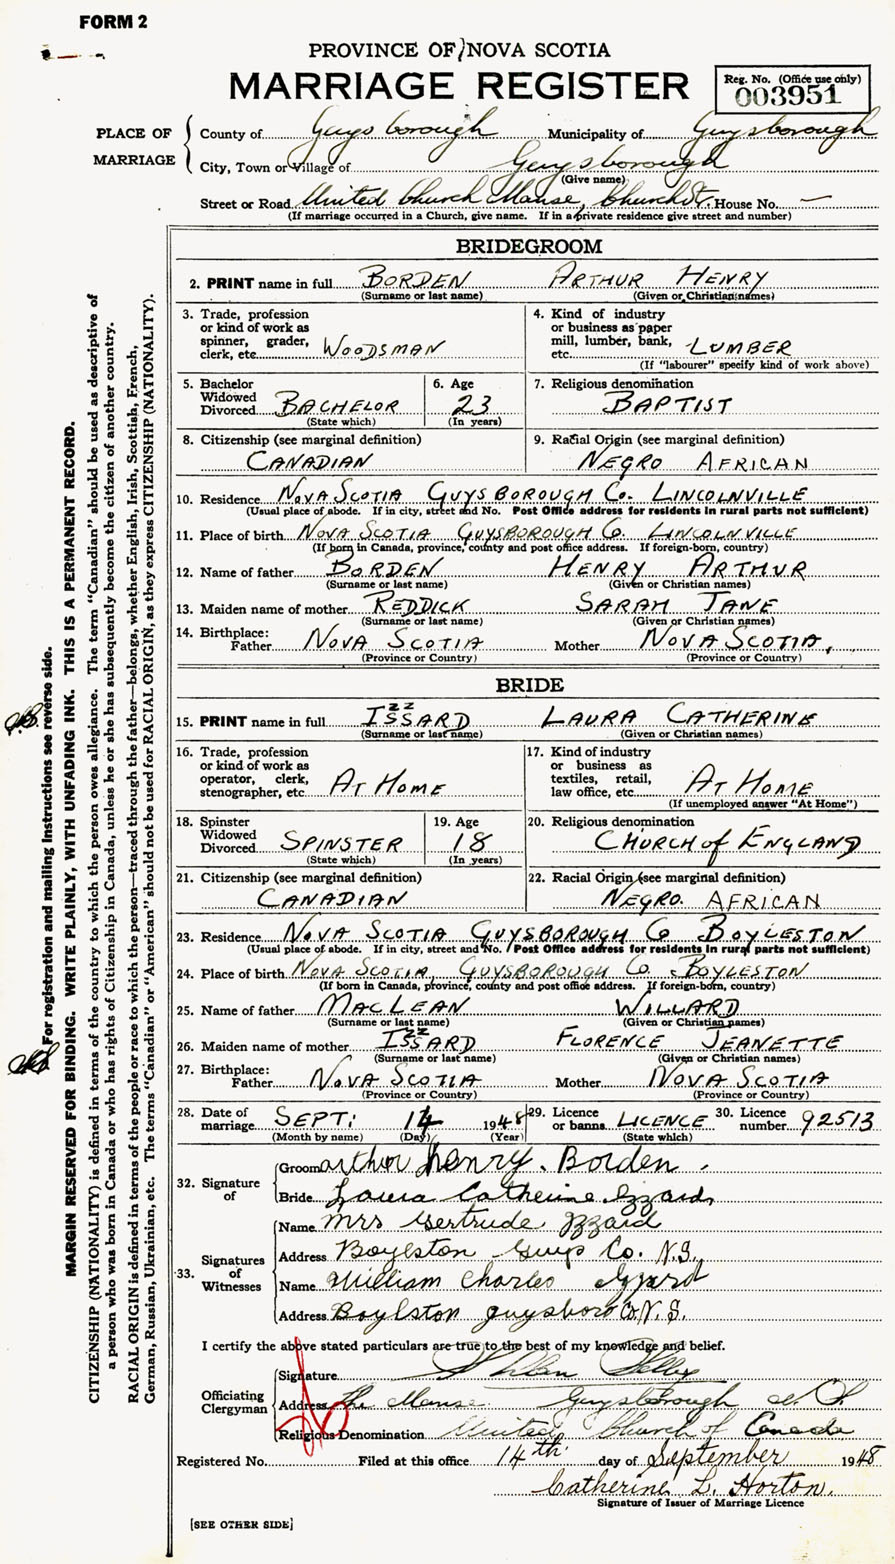 FORM 2
PROVINCE OF NOVA SCOTIA
MARRIAGE REGISTER
Reg. No. (Office use only)
003951
PLACE OF MARRIAGE
County of Guysborough Municipality of Guysborough
City, Town or Village of Guysborough
(Give name)
Street or Road United Church Manse, Church St. House No. —
(If marriage occurred in a Church, give name. If in a private residence give street and number)
BRIDEGROOM
2. PRINT name in full BORDEN ARTHUR HENRY
(Surname or last name) (Given or Christian names)
3. Trade, profession or kind of work as spinner, grader, clerk, etc. WOODSMAN
4. Kind of industry or business as paper mill, lumber, bank, etc. LUMBER
(If "labourer" specify kind of work above)
5. Bachelor Widowed Divorced BACHELOR
(State which)
6. Age 23
(In years)
7. Religious denomination BAPTIST
8. Citizenship (see marginal definition) CANADIAN
9. Racial Origin (see marginal definition) NEGRO AFRICAN
10. Residence NOVA SCOTIA GUYSBOROUGH CO. LINCOLNVILLE
(Usual place of abode. If in city, street and No. Post Office address for residents in rural parts not sufficient)
11. Place of birth NOVA SCOTIA GUYSBOROUGH CO. LINCOLNVILLE
(If born in Canada, province, county and post office address. If foreign-born, country)
12. Name of father BORDEN HENRY ARTHUR
(Surname or last name) (Given or Christian names)
13. Maiden name of mother REDDICK SARAH JANE
(Surname or last name) (Given or Christian names)
14. Birthplace: Father NOVA SCOTIA Mother NOVA SCOTIA,
(Province or Country) (Province or Country)
BRIDE
zz
15. PRINT name in full ISSARD LAURA CATHERINE
(Surname or last name) (Given or Christian names)
16. Trade, profession or kind of work as operator, clerk, stenographer, etc. AT HOME
17. Kind of industry or business as textiles, retail, law office, etc. AT HOME
(If unemployed answer "At Home")
18. Spinster Widowed Divorced SPINSTER
(State which)
19. Age 18
(In years)
20. Religious denomination CHURCH of ENGLAND
21. Citizenship (see marginal definition) CANADIAN
22. Racial Origin (see marginal definition) NEGRO. AFRICAN
23. Residence NOVA SCOTIA GUYSBOROUGH CO BOYLESTON
(Usual place of abode. If in city, street and No. Post Office address for residents in rural parts not sufficient)
24. Place of birth NOVA SCOTIA, GUYSBOROUGH CO. BOYLESTON
(If born in Canada, province, county and post office address. If foreign-born, country)
25. Name of father MACLEAN WILLARD
(Surname or last name) (Given or Christian names)
zz
26. Maiden name of mother ISSARD FLORENCE JEANETTE
(Surname or last name) (Given or Christian names)
27. Birthplace: Father NOVA SCOTIA Mother NOVA SCOTIA
(Province or Country) (Province or Country)
28. Date of marriage SEPT: 14 1948 29. Licence or banns LICENCE 30. Licence number 92513
(Month by name) (Day) (Year) (State which)
32. Signature of
Groom arthur henry. Borden.
Bride Laura Catherine Izzard,
33. Signatures of Witnesses
Name Mrs Gertrude Izzard
Address Boylston Guys Co. N.S.
Name William Charles Izzard
Address Boylston guysboro Co. N.S.
I certify the above stated particulars are true to the best of my knowledge and belief.
Officiating Clergyman
Signature
Address The Manse Guysborough
Religious Denomination United Church of Canada
Registered No. Filed at this office 14th day of September 1948
Catherine L. Horton.
Signature of Issuer of Marriage Licence
[SEE OTHER SIDE]
For registration and mailing instructions see reverse side.
MARGIN RESERVED FOR BINDING. WRITE PLAINLY, WITH UNFADING INK. THIS IS A PERMANENT RECORD.
CITIZENSHIP (NATIONALITY) is defined in terms of the country to which the person owes allegiance. The term "Canadian" should be used as descriptive of
a person who was born in Canada or who has rights of Citizenship in Canada, unless he or she has subsequently become the citizen of another country.
RACIAL ORIGIN is defined in terms of the people or race to which the person—traced through the father—belongs, whether English, Irish, Scottish, French,
German, Russian, Ukrainian, etc. The terms "Canadian" or "American" should not be used for RACIAL ORIGIN, as they express CITIZENSHIP (NATIONALITY).